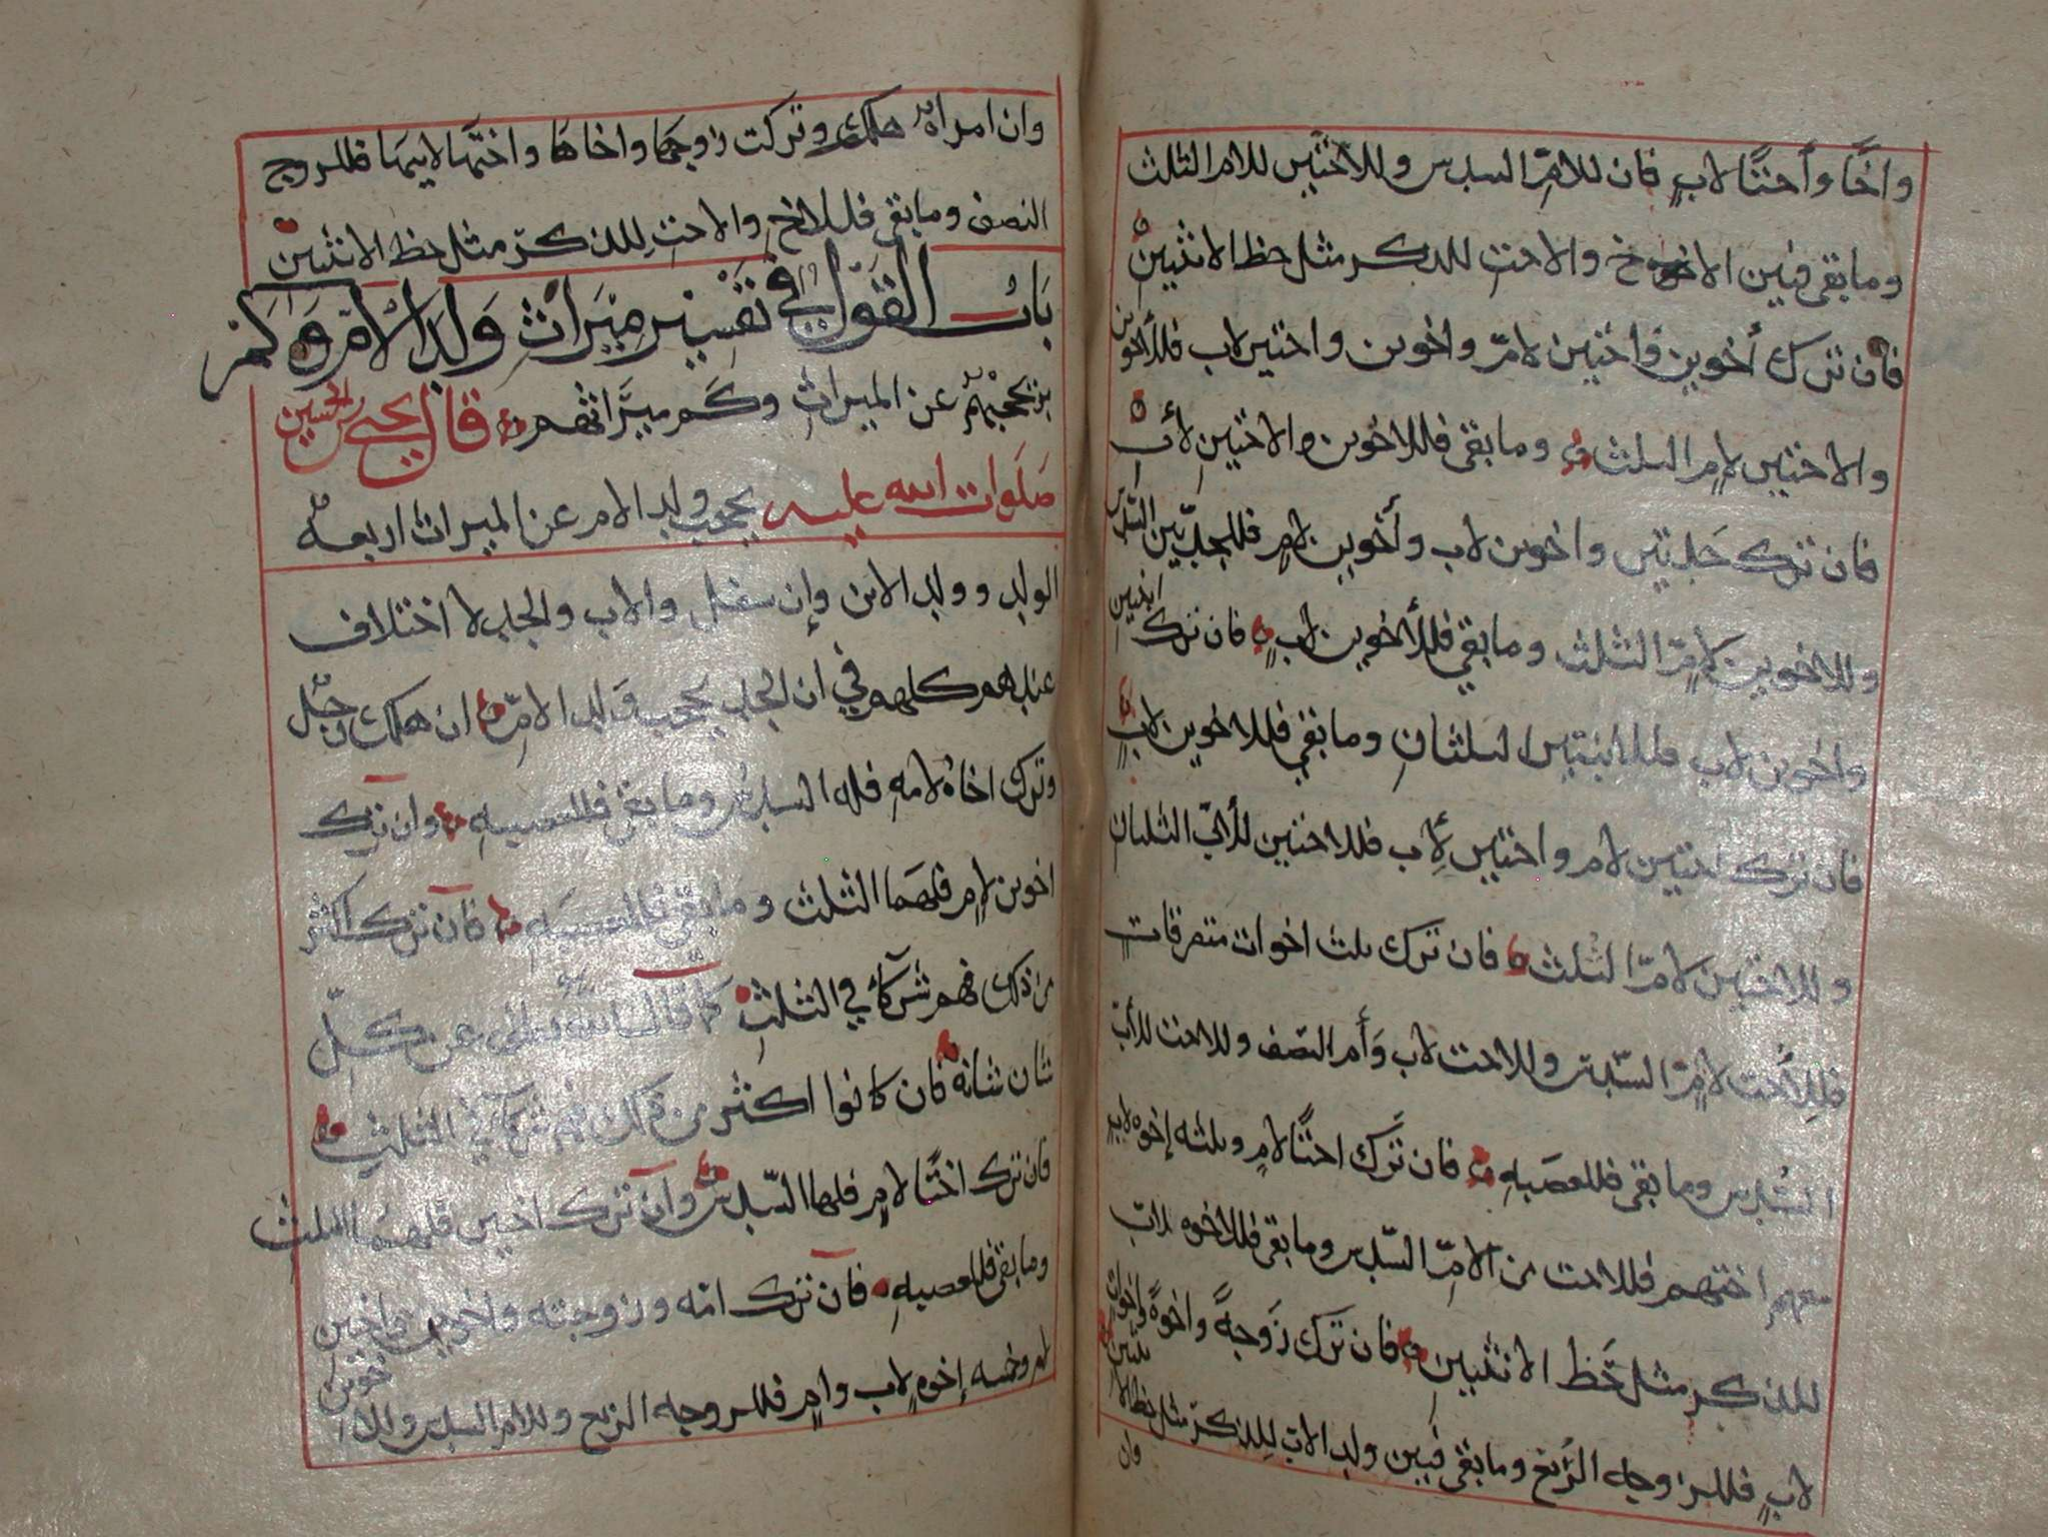 واخًا وأختًا لابٍ فان للامِّ السدس وللأختين للام الثلث
وما بقى فبين الاخ والاخت للذكر مثل حظ الانثيين
فان ترك أخوين واختين لامّ واخوين واختين لاب فللأخوين
والاختين لامٍ الثلث وما بقى فللاخوين والاختين لأب
فان ترك جدتين واخوين لاب وأخوين لامٍ فللجدّتين السّدس
وللاخوين لأمٍّ الثلث وما بقي فللأخوين لابٍ فان ترك ابنتين
واخوين لاب فللابنتين الثلثان وما بقي فللاخوين لابٍ
فان ترك اختين لام واختين لأِب فللاختين للأب الثلثان
وللاختين لامّ الثلث فان ترك ثلث اخوات متفرقات
فللأخت لامٍّ السّدس وللاخت لاب وَأم النّصف وللاخت للأب
السُدس وما بقى فللعصبهِ فان تَرَك اختًا لامٍ وثلثه إخوه لابٍ
معهم اختهم فللاخت من الامِّ السّدس وما بقى فللاخوه لاب
للذكر مثل حَظ الانثيين فان ترك زَوجةً واخوةً واخواتٍ
لابٍ فللزوجه الرُّبع وما بقى فبين ولد الاب لِلذكر مثل حظ الانثيين
وان
وان امراة هلكت وتركت زوجها واخاها واختها لابيها فللزوج
النصف وما بقى فللاخ والاختِ للذكر مثل حظ الانثيين
بَابُ القَوْل في تفسير ميْرَاثِ وَلَد الامّ وَكم
من يحجبهم عن الميراث وكَم ميرَاثهم قال يحيى بن الحسين
صَلَوات الله عليه يحجب ولد الام عن الميراث اربعه
الولد وولد الابن وإن سفل والاب والجد لا اختلاف
عندهم كلهم في ان الجد يحجب وَلد الامِّ ان هلك رجُل
وترك اخاهُ لامهِ فله السدس وما بقى فللعصبهِ وان ترك
اخوين لامٍ فلهَما الثلث وما بقى فللعصبَهِ فان ترك اكثر
من ذلك فهم شركآء في الثلثِ كمَا قال الله تعالى عن كلّ
شان شانه فان كانوا اكثر من ذلك فهم شركآء في الثلثِ
فان ترك اختًا لامٍ فلها السّدس وان ترك اختين فلهمُا الثلث
وما بقى فللعصبهِ فان ترك امّه وزوجته واخوين واختين
لامٍ وخمسه إخوهٍ لاب وامٍ فللزوجه الربع وللام السدس وللاخوين